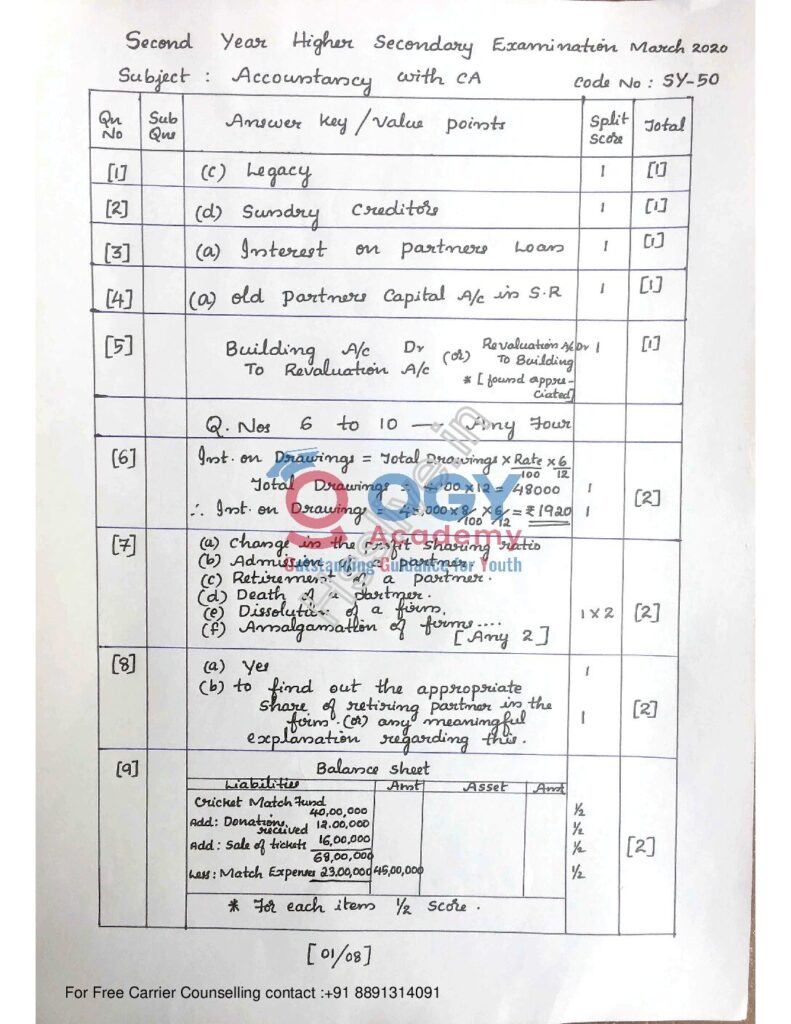 Second Year Higher Secondary Examination March 2020
Subject : Accountancy with CA Code No : SY-50
Qn No Sub Qns Answer key/Value points Split Score Total
[1] (c) Legacy 1 [1]
[2] (d) Sundry Creditors 1 [1]
[3] (a) Interest on partners Loan 1 [1]
[4] (a) old partners Capital A/c in S.R 1 [1]
[5] Building A/c Dr (or) Revaluation A/c Dr 1 [1]
To Revaluation A/c To Building
* [found appre-
ciated]
Q. Nos 6 to 10 — Any Four
[6] Inst. on Drawings = Total Drawings × Rate/100 × 6/12
Total Drawings = 4000×12 = 48000 1 [2]
∴ Inst. on Drawings = 48,000×8/100 × 6/12 = ₹1920 1
[7] (a) Change in the profit sharing ratio
(b) Admission of a partner
(c) Retirement of a partner.
(d) Death of a partner.
(e) Dissolution of a firm.
(f) Amalgamation of firms.... 1×2 [2]
[Any 2]
[8] (a) Yes 1
(b) to find out the appropriate
share of retiring partner in the [2]
firm. (or) any meaningful 1
explanation regarding this.
[9] Balance sheet
Liabilities Amt Asset Amt
Cricket Match Fund
40,00,000 ½
Add: Donation received 12,00,000 ½
Add: Sale of tickets 16,00,000 ½ [2]
68,00,000
Less: Match Expenses 23,00,000 45,00,000 ½
* For each item ½ score.
[01/08]
OGY
Academy
Outstanding Guidance for Youth
For Free Carrier Counselling contact :+91 8891314091